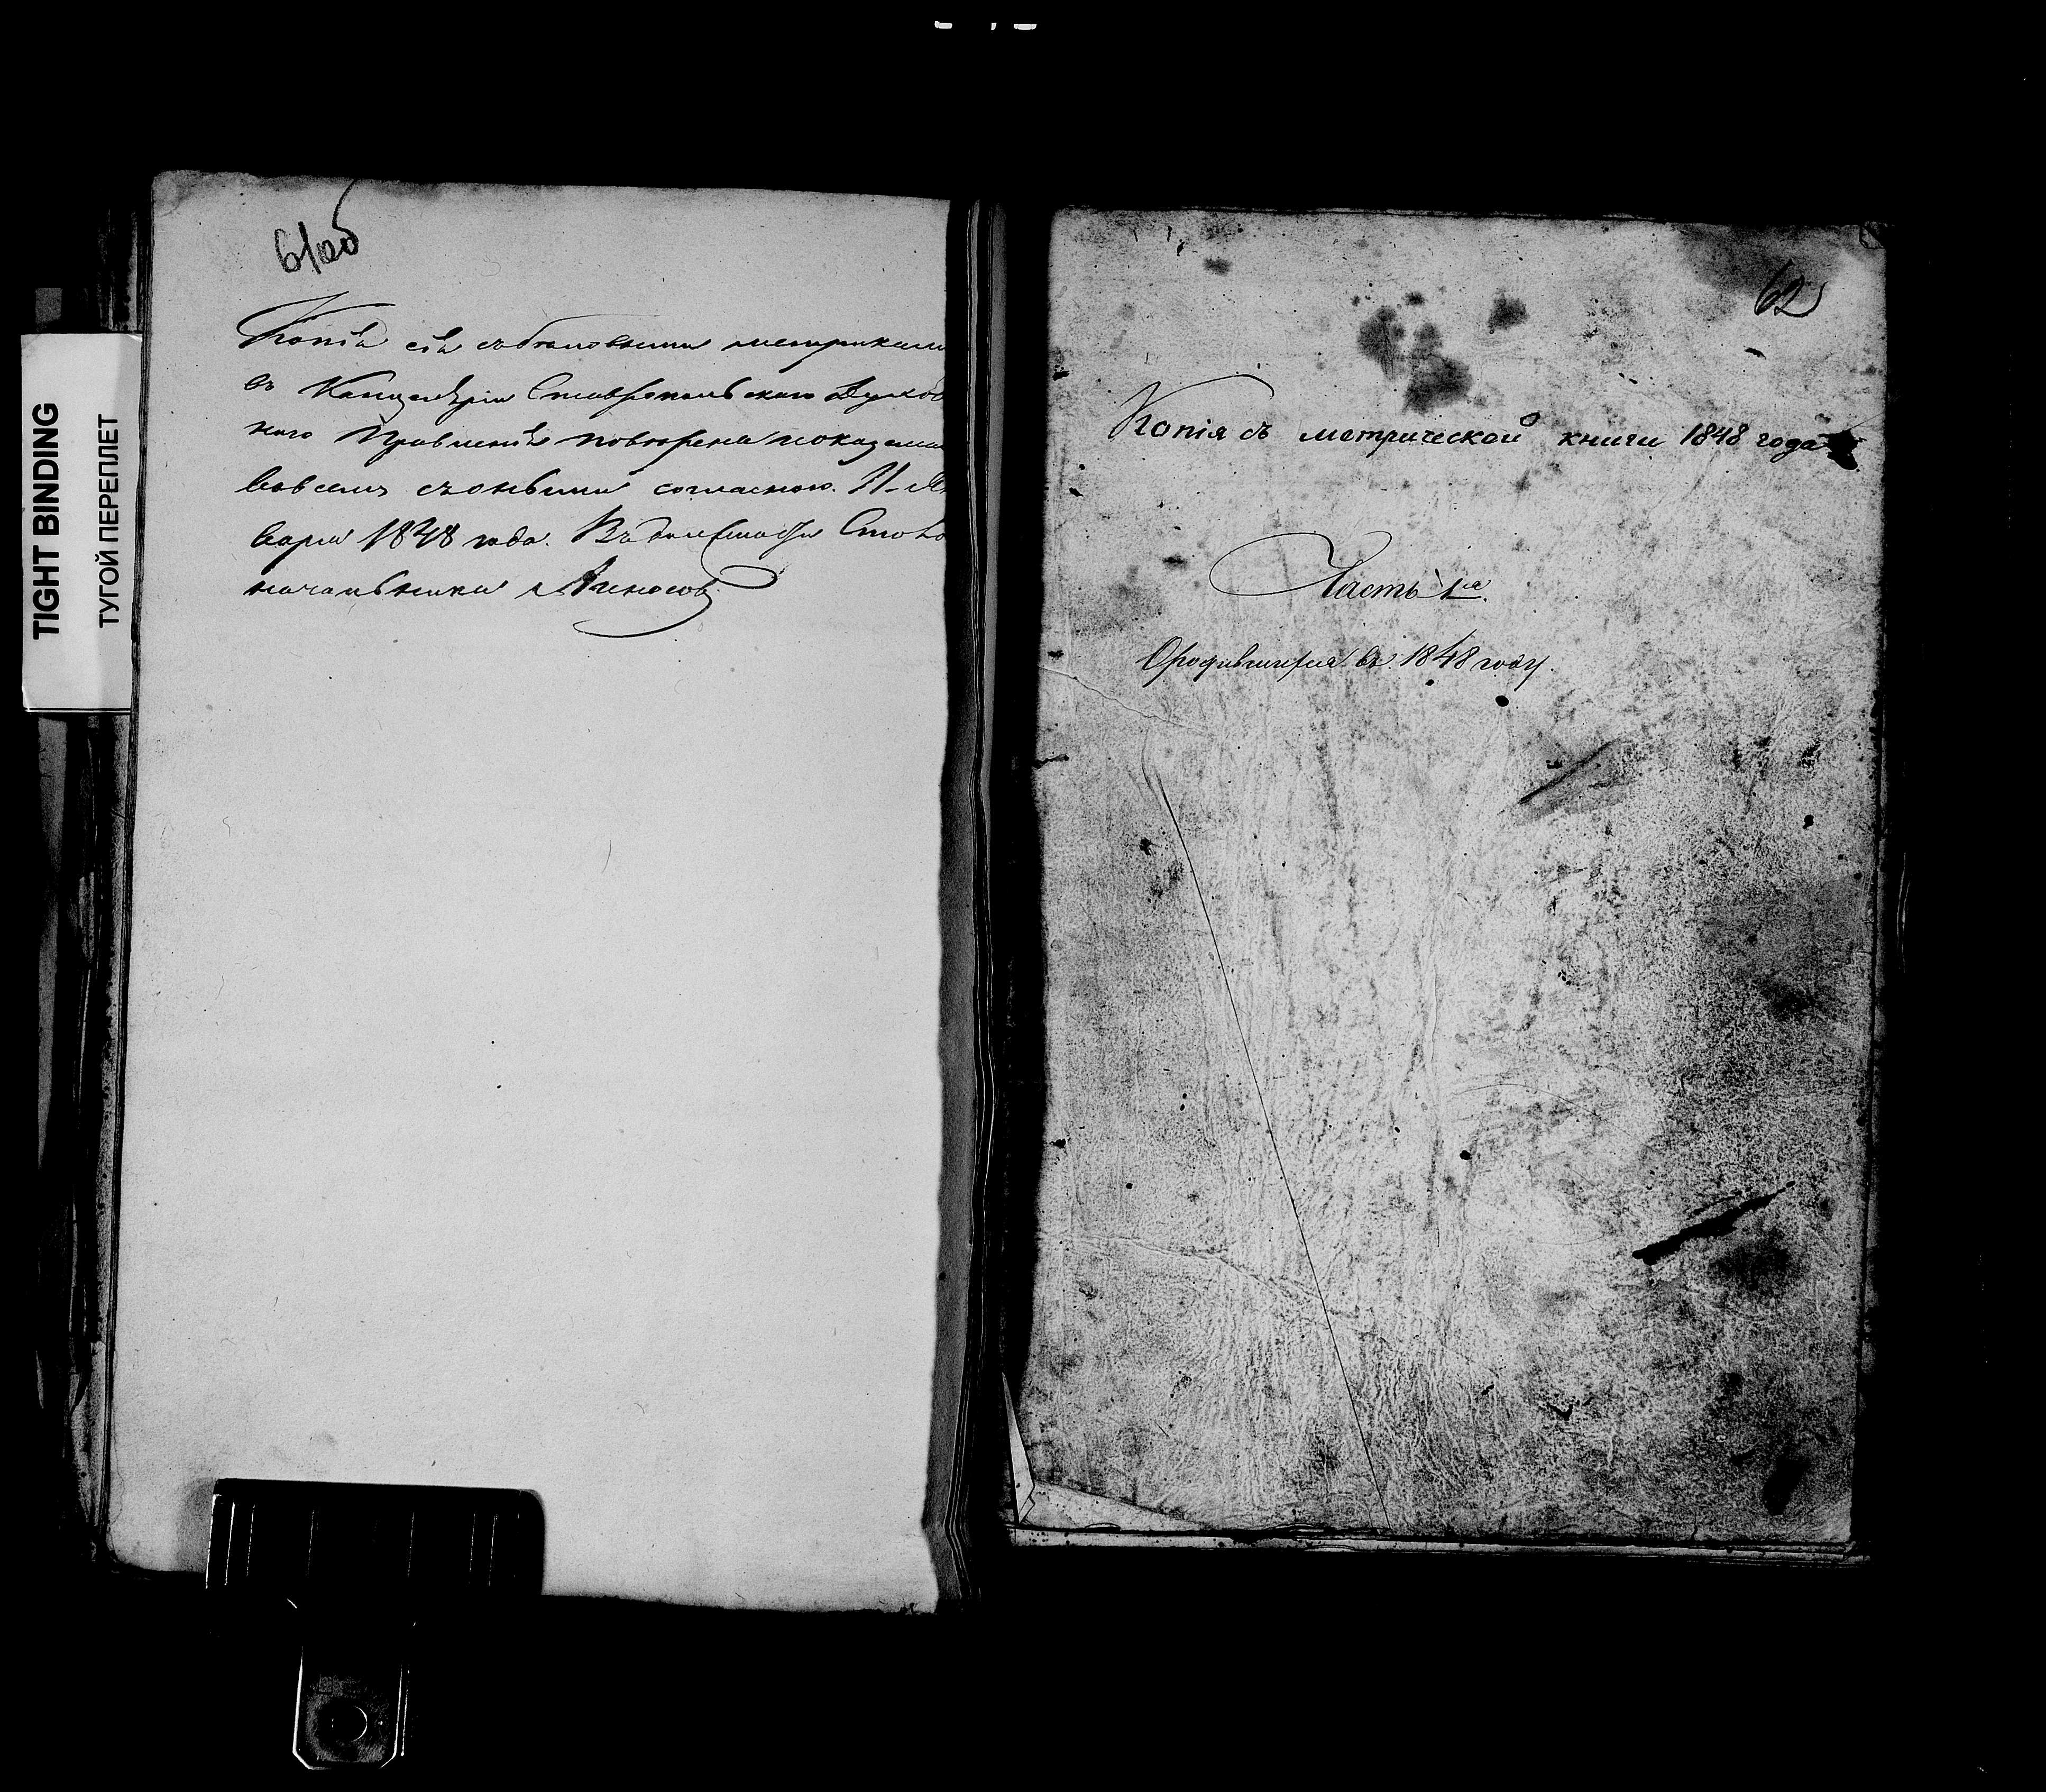 TIGHT BINDING
ТУГОЙ ПЕРЕПЛЕТ
61об
Копія сія съ бѣловыми метриками
въ Канцеляріи Ставропольского Духов
ного Правленія повѣрена и оказалась
во всемъ съ оными согласною. Ян
варя 1848 года. Въ должности Столо
начальника
62
Копія съ метрической книги 1848 года
Часть 1я.
О родившихся въ 1848 году.